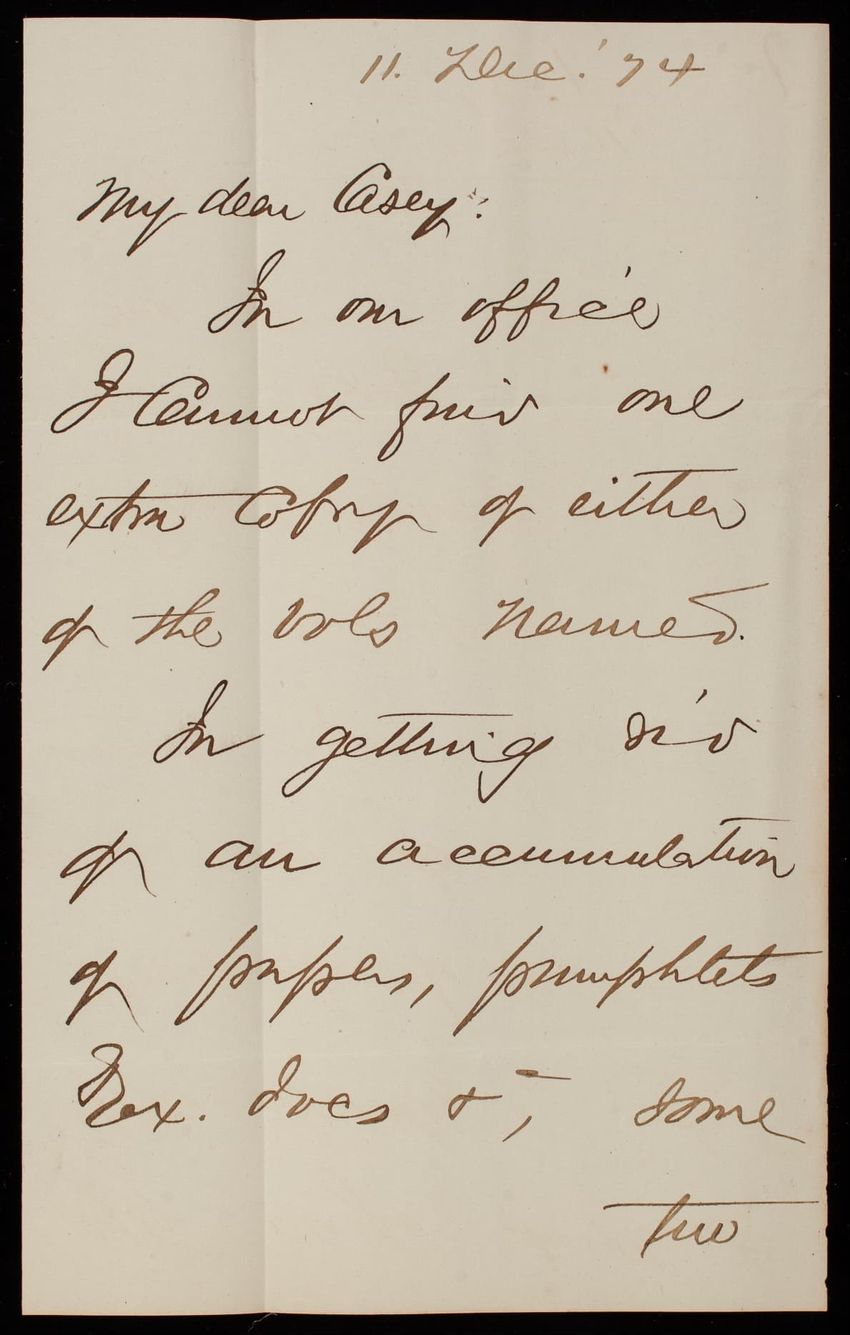 11. Dec.' 74
My dear Casey:
In our office
I cannot find one
extra copy of either
of the vols named.
In getting rid
of an accumulation
of papers, pamphlets
Ex. docs &c, some
two